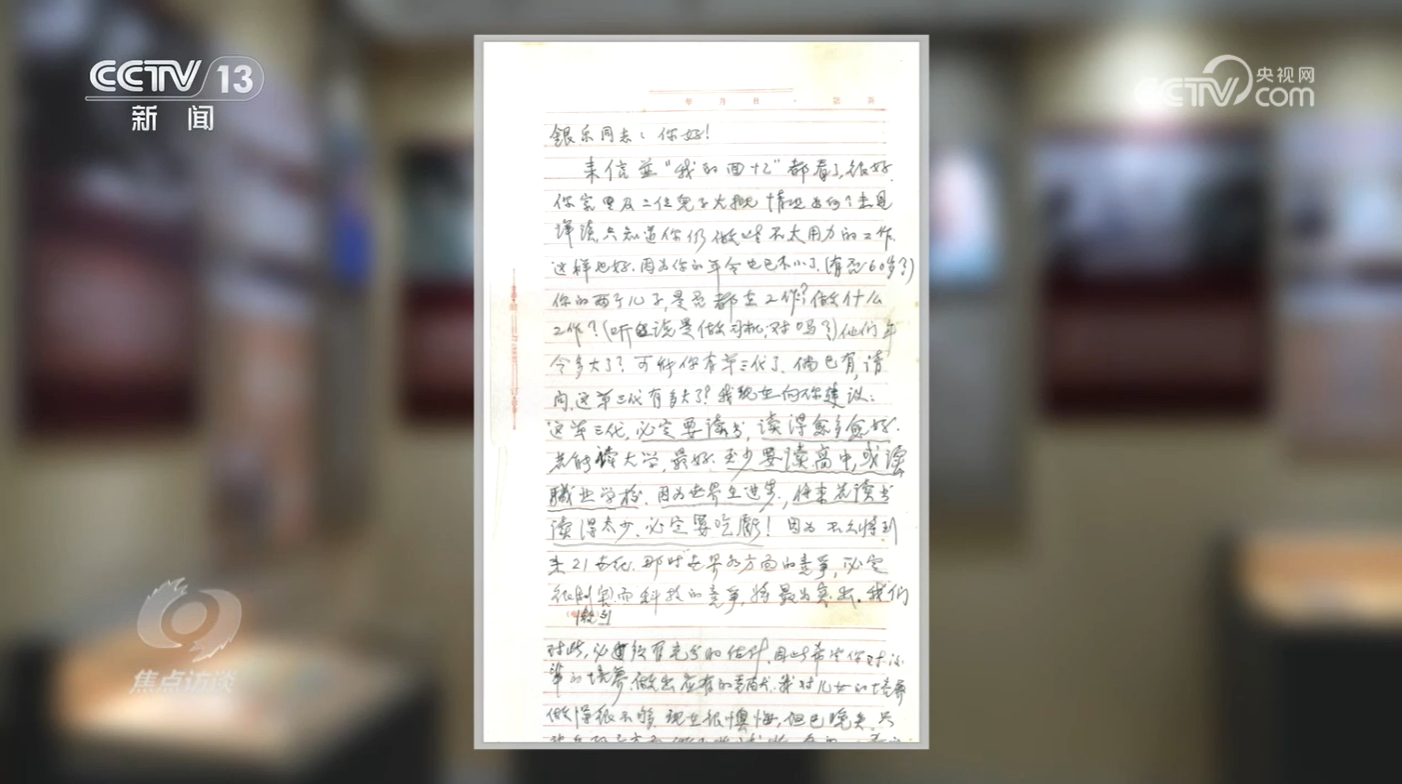 CCTV 13
新闻
CCTV 央视网
com
年 月 日 第 页
银乐同志:你好!
来信并“我的回忆”都看了,很好.
你家里及二位儿子大概情况如何?未见
详谈,只知道你仍做些不太用力的工作.
这样也好.因为你的年令也已不小了.(有否60岁?)
你的两个儿子,是否都在工作?做什么
工作?(听说是做司机,对吗?)他们年
令多大了?可能你有第三代了.倘已有,请
问,这第三代有多大了?我现在向你建议:
这第三代,必定要读书,读得愈多愈好.
若能读大学,最好.至少要读高中,或读
职业学校.因为世界在进步,将来若读书
读得太少,必定要吃虧!因为不久将到
来21世纪.那时世界各方面的竞争,必定
很剧烈.而科技的竞争,将最为突出.我们
激烈
对此,必须有充分的估计.因此希望你对
的培养,做出应有的贡献.我对儿女的培养
做得很不够,现在很懊悔,但已晚矣.只
焦点访谈